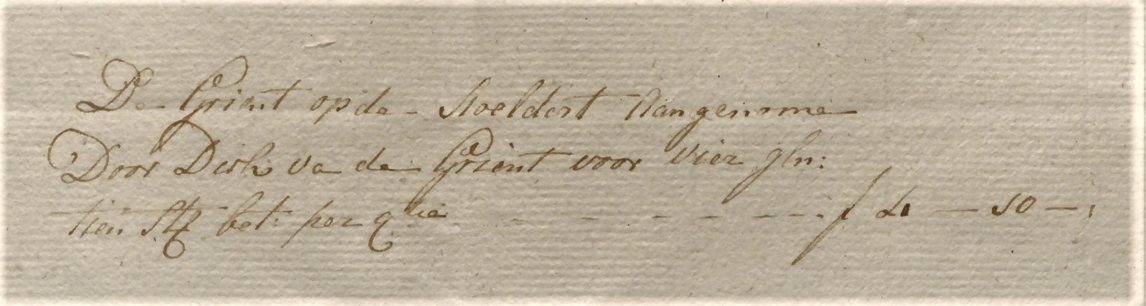 De Grient op de Stoeldert Aangenome
Door Dirk va de Grient voor vier gln:
tien St bet: per qtie - - - - - - - f 4 - 10 - ;